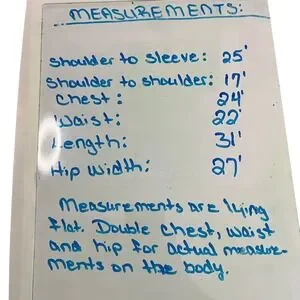 MEASUREMENTS:
Shoulder to sleeve: 25'
Shoulder to shoulder: 17'
Chest: 24'
Waist: 22'
Length: 31'
Hip Width: 27'
Measurements are lying
flat. Double chest, waist
and hip for actual measure-
ments on the body.